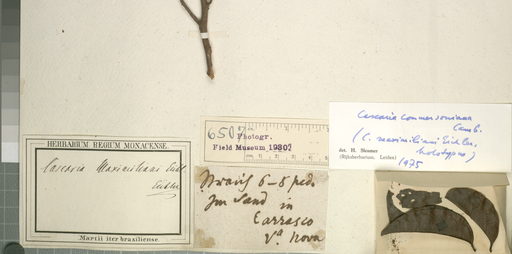 6507
Photogr.
Field Museum 19807
Casearia commersoniana
Camb.
(C. maximiliani Eichler,
holotypus)
det. H. Sleumer
(Rijksherbarium, Leiden) 1975
HERBARIUM REGIUM MONACENSE.
Casearia Maximiliani
Eichler
Martii iter brasiliense.
6-8 ped.
Im Sand in
Carrasco
Va Nova